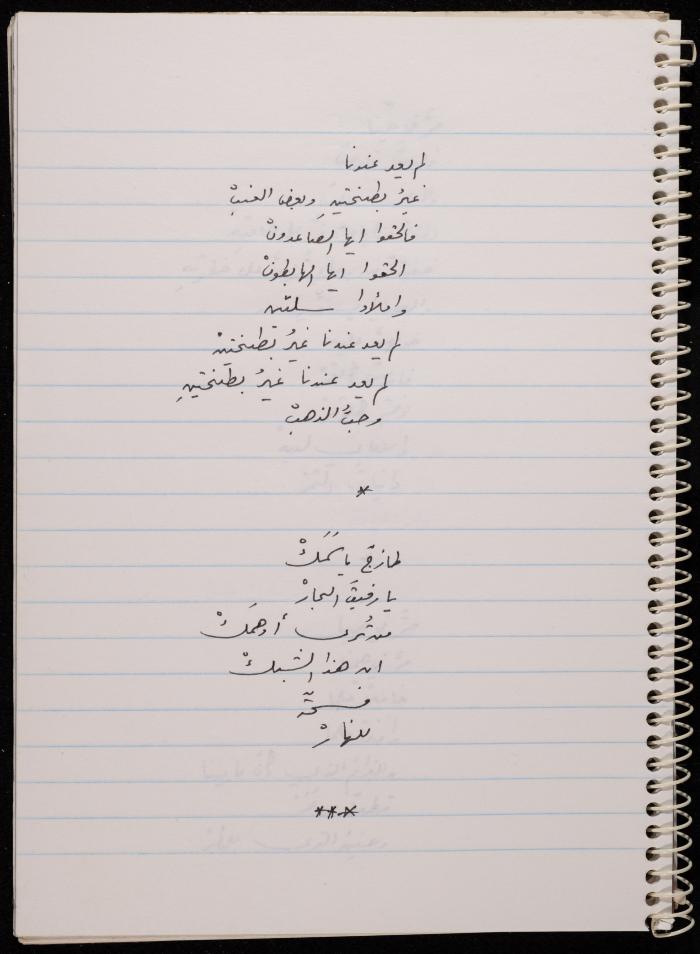 لم يعد عندنا
غيرُ بطيختينِ وبعض العنبْ
فالحقوا ايها الصاعدونْ
الحقوا ايها الهابطونْ
واملأوا سلتين
لم يعد عندنا غيرُ بطيختينْ
لم يعد عندنا غيرُ بطيختينِ
وحبُّ الذهبْ
*
طازجٌ يا سَمَكْ
يا رفيقَ البحارْ
من تُرى أوهمَكْ
ان هذا الشبكْ
فسحةٌ
للنهارْ
***